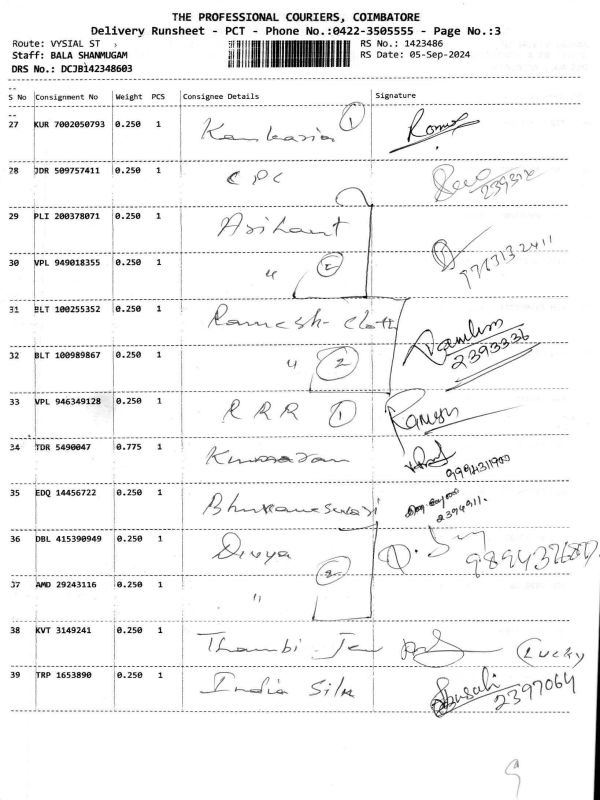 THE PROFESSIONAL COURIERS, COIMBATORE
Delivery Runsheet - PCT - Phone No.:0422-3505555 - Page No.:3
Route: VYSIAL ST RS No.: 1423486
Staff: BALA SHANMUGAM RS Date: 05-Sep-2024
DRS No.: DCJB142348603
S No Consignment No Weight PCS Consignee Details Signature
27 KUR 7002050793 0.250 1 1
28 JDR 509757411 0.250 1 CPC
29 PLI 200378071 0.250 1 Arihant
30 VPL 949018355 0.250 1 " 2
31 BLT 100255352 0.250 1 Ramesh-Cloth
32 BLT 100989867 0.250 1 " 2 2393336
33 VPL 946349128 0.250 1 RRR 1
34 TDR 5490047 0.775 1 Kumaran
35 EDQ 14456722 0.250 1 Bhuvaneswari
36 DBL 415390949 0.250 1 Divya
37 AMD 29243116 0.250 1 " 2
38 KVT 3149241 0.250 1 Thambi Lucky
39 TRP 1653890 0.250 1 India Silk 2397064
9